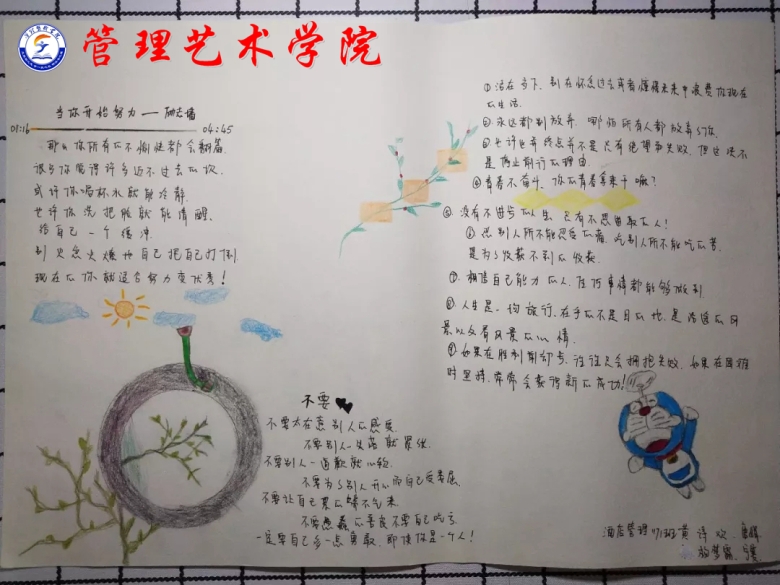 管理艺术学院
当你开始努力——励志墙
01:16 04:45
那么你所有的不愉快都会翻篇
很多你觉得许多迈不过去的坎
或许你喝杯水就能冷静
也许你洗把脸就能清醒
给自己一个缓冲
别
把自己打倒
现在的你就适合努力变优秀！
不要
不要太在意别人的感受
不要别人一失落就累垮
不要别人一道歉就心软
不要为了别人开心而自己受委屈
不要让自己累的喘不气来
不要愚蠢的善良不要自己吃亏
一定要自己多一点勇敢，即使你是一个人！
①活在当下，别在怀念过去或者憧憬未来中浪费你现在
的生活。
②永远都别放弃，哪怕所有人都放弃了你
③也许也有终点并不是只有绝望和失败，但这决不
是停止前行的理由
④青春不奋斗，你的青春拿来干嘛？
⑤没有不进步的人生，只有不思进取的人！
⑥忍别人所不能忍受的痛，吃别人所不能吃的苦
是为了收获不到的收获
⑦相信自己能力的人，任何事情都能够做到
⑧人生是一约旅行，在乎的不是目的地，是沿途的风
景以及看风景的心情
⑨如果在胜利前却步，往往只会拥抱失败，如果在困难
时坚持，常常会获得新的成功！
酒店管理 班 黄诗欢